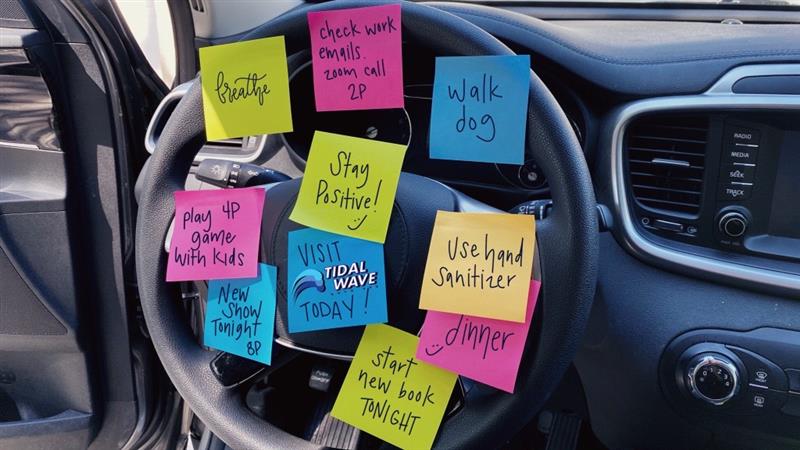 breathe
check work
emails.
zoom call
2P
walk
dog
Stay
Positive!
play 4P
game
with kids
VISIT
TIDAL
WAVE
TODAY!
Use hand
sanitizer
New
Show
Tonight
8P
dinner
start
new book
TONIGHT
RADIO
MEDIA
SEEK
TRACK